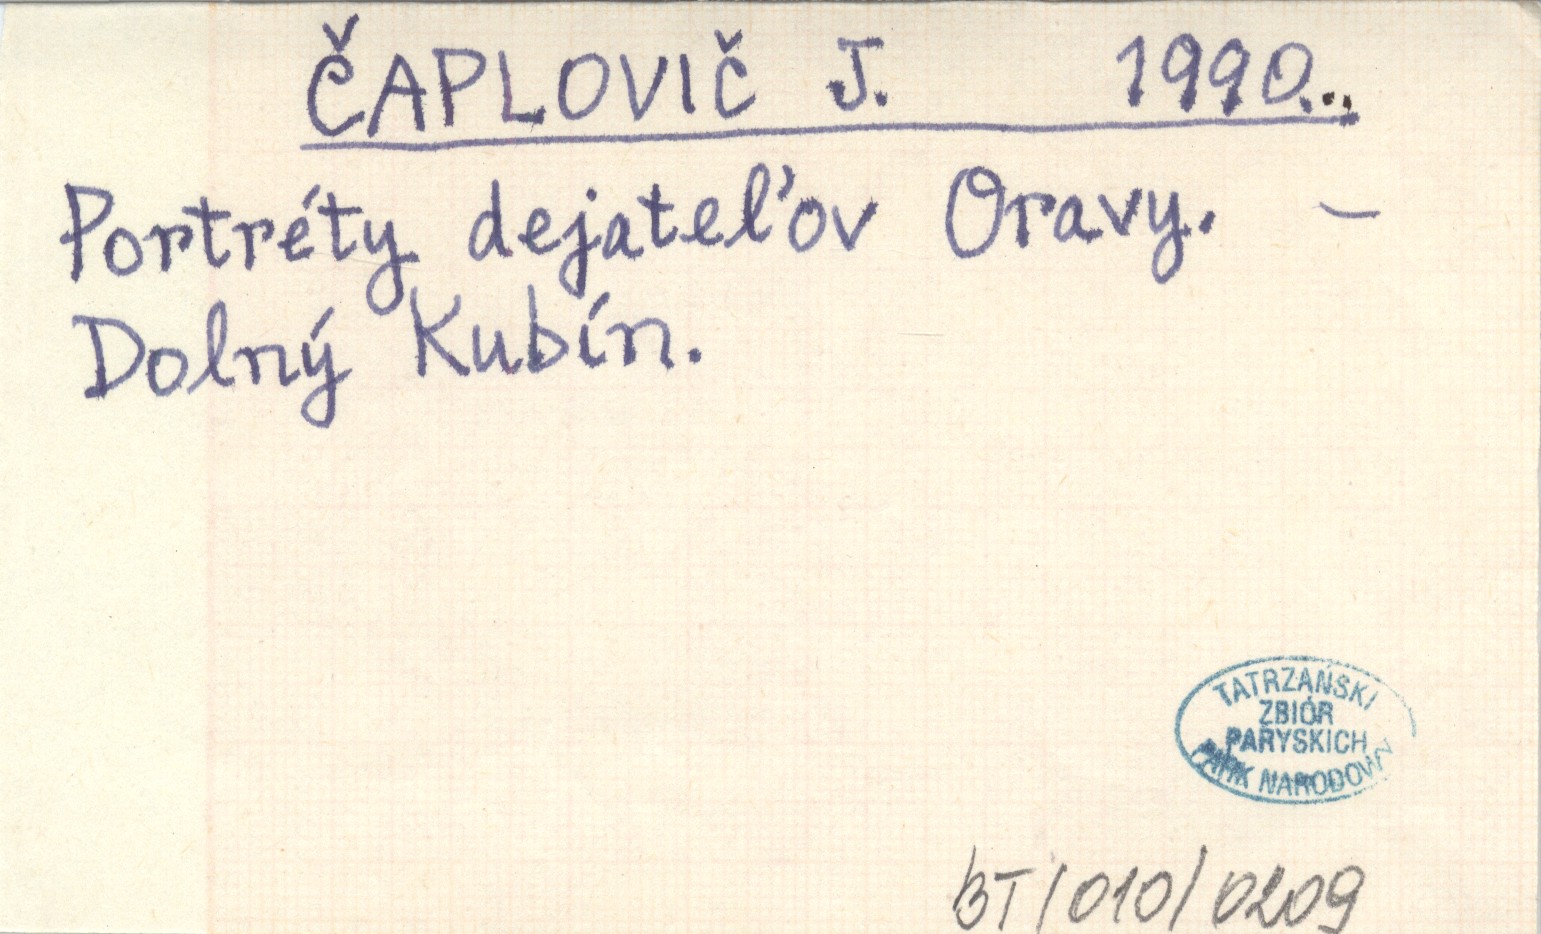 ČAPLOVIČ J. 1990...
Portréty dejateľov Oravy. –
Dolný Kubín.
TATRZAŃSKI
ZBIÓR
PARYSKICH
PARK NARODOWY
BT/010/0209